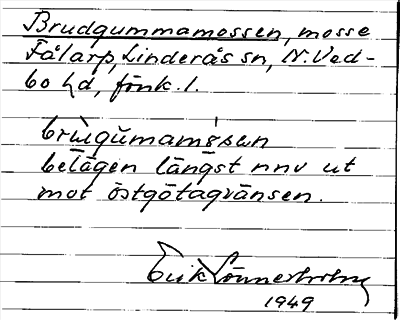 Brudgummamossen, mosse
Fålarp, Linderås sn, N. Ved-
bo hd, fönk. l.
belägen längst nnv ut
mot östgötagränsen.
Erik Lönnerholm
1949